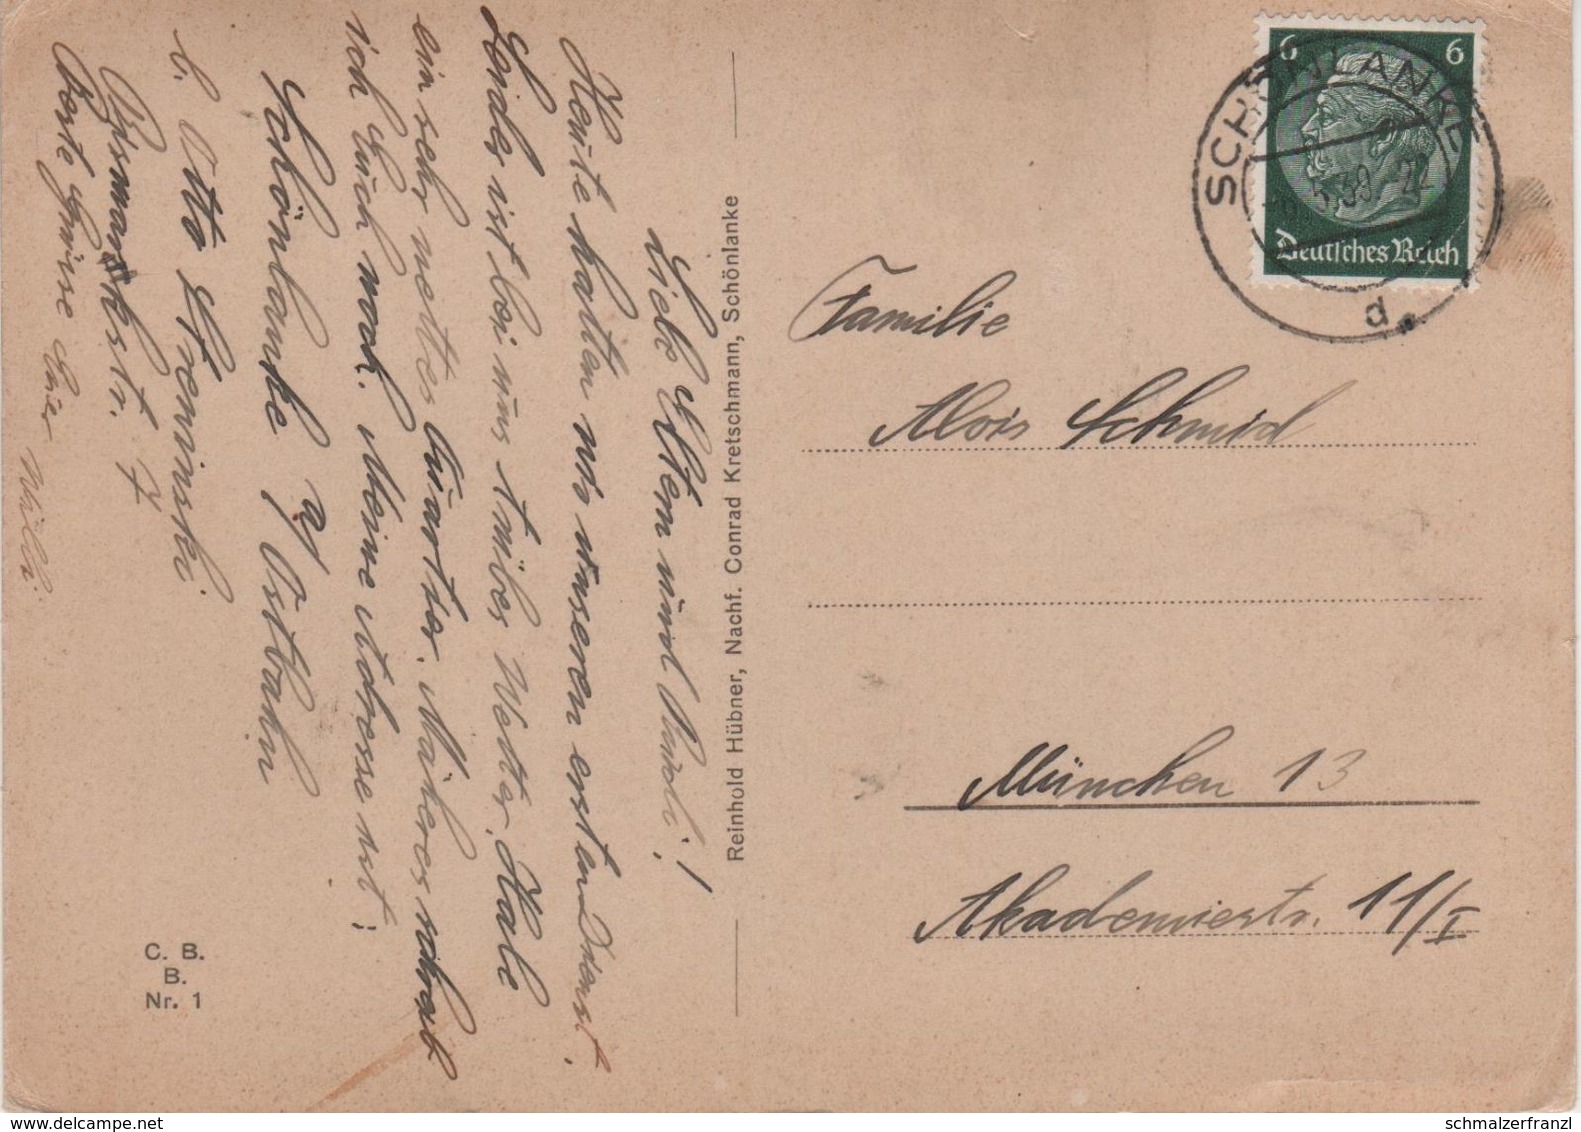 Liebe Eltern und Rudi!
Heute hatten wir unseren ersten Dienst.
Leider ist bei uns trübes Wetter. Habe
ein sehr nettes Quartier. Näheres schreib
ich Euch noch. Meine Adresse ist:
Schönlanke a/Ostbahn
b. Otto
Bismarckstr. 7
Beste Grüsse Euer Willi.
C. B.
B.
Nr. 1
Reinhold Hübner, Nachf. Conrad Kretschmann, Schönlanke
6 6
Deutsches Reich
SCHÖNLANKE
d
Familie
Alois Schmid
München 13
Akademiestr. 11/I
www.delcampe.net
schmalzerfranzl